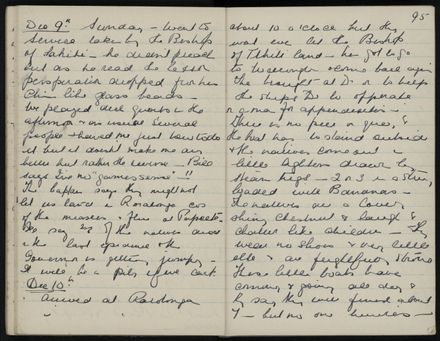 Dec 9th Sunday – went to
service taken by the Bishop
of Tahiti – he doesn't preach
but as he read the lesson
perspiration dropped from his
chin like glass beads –
We played deck quoits in the
afternoon & as usual several
people showed me just how to do
it but it doesn't make me any
better but rather the reverse – Bill
says I've no "games sense" !!
they might not
let us land in Rarotonga cos
of the measles & flu at Papeete.
the natives died
in the last & the
Governor is getting jumpy –
It will be a pity if we can't
Dec 10th
Arrived at Rarotonga
95
about 10 o'clock but they
let the Bishop
of Tahiti land – he got to go
to & come back again
to help
the ship's Dr to operate
on a man for appendicitis –
There is no pier or quay, &
the boat has to stand outside
& the natives come out in
little lighters drawn by
2 or 3 in a string,
loaded with Bananas –
The natives are a lovely
shiny chestnut & laugh &
chatter like children – They
wear no shoes & very little
else & are frightfully strong
These little boats have
coming & going all day &
they say they will finish about
7 – but no one